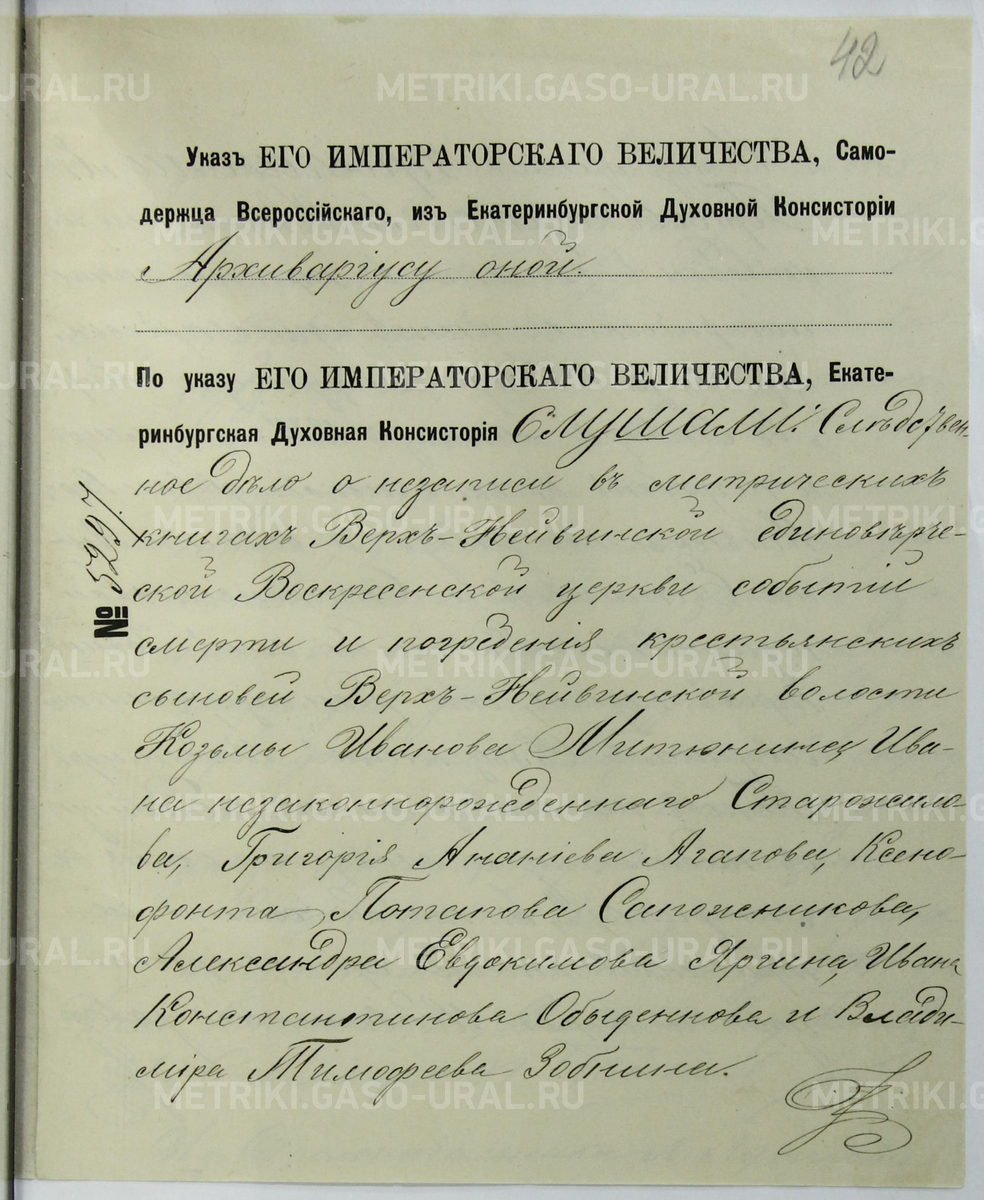 42
Указъ ЕГО ИМПЕРАТОРСКАГО ВЕЛИЧЕСТВА, Само-
держца Всероссійскаго, изъ Екатеринбургской Духовной Консисторіи
Архиваріусу оной.
По указу ЕГО ИМПЕРАТОРСКАГО ВЕЛИЧЕСТВА, Екате-
ринбургская Духовная Консисторія Слушали: Слѣдствен-
ное дѣло о незаписи въ метрическихъ
книгахъ Верхъ-Нейвинской единовѣрче-
ской Воскресенской церкви событій
смерти и погребенія крестьянскихъ
сыновей Верхъ-Нейвинской волости
Козьмы Иванова Митюнина, Ива-
на незаконнорожденнаго Старожило-
ва, Григорія Ананіева Агапова, Ксено-
фонта Потапова Сапожникова,
Александра Евдокимова Яргина, Ивана
Константинова Обыденнова и Влади-
міра Тимофеева Зобнина.
№ 5297
METRIKI.GASO-URAL.RU